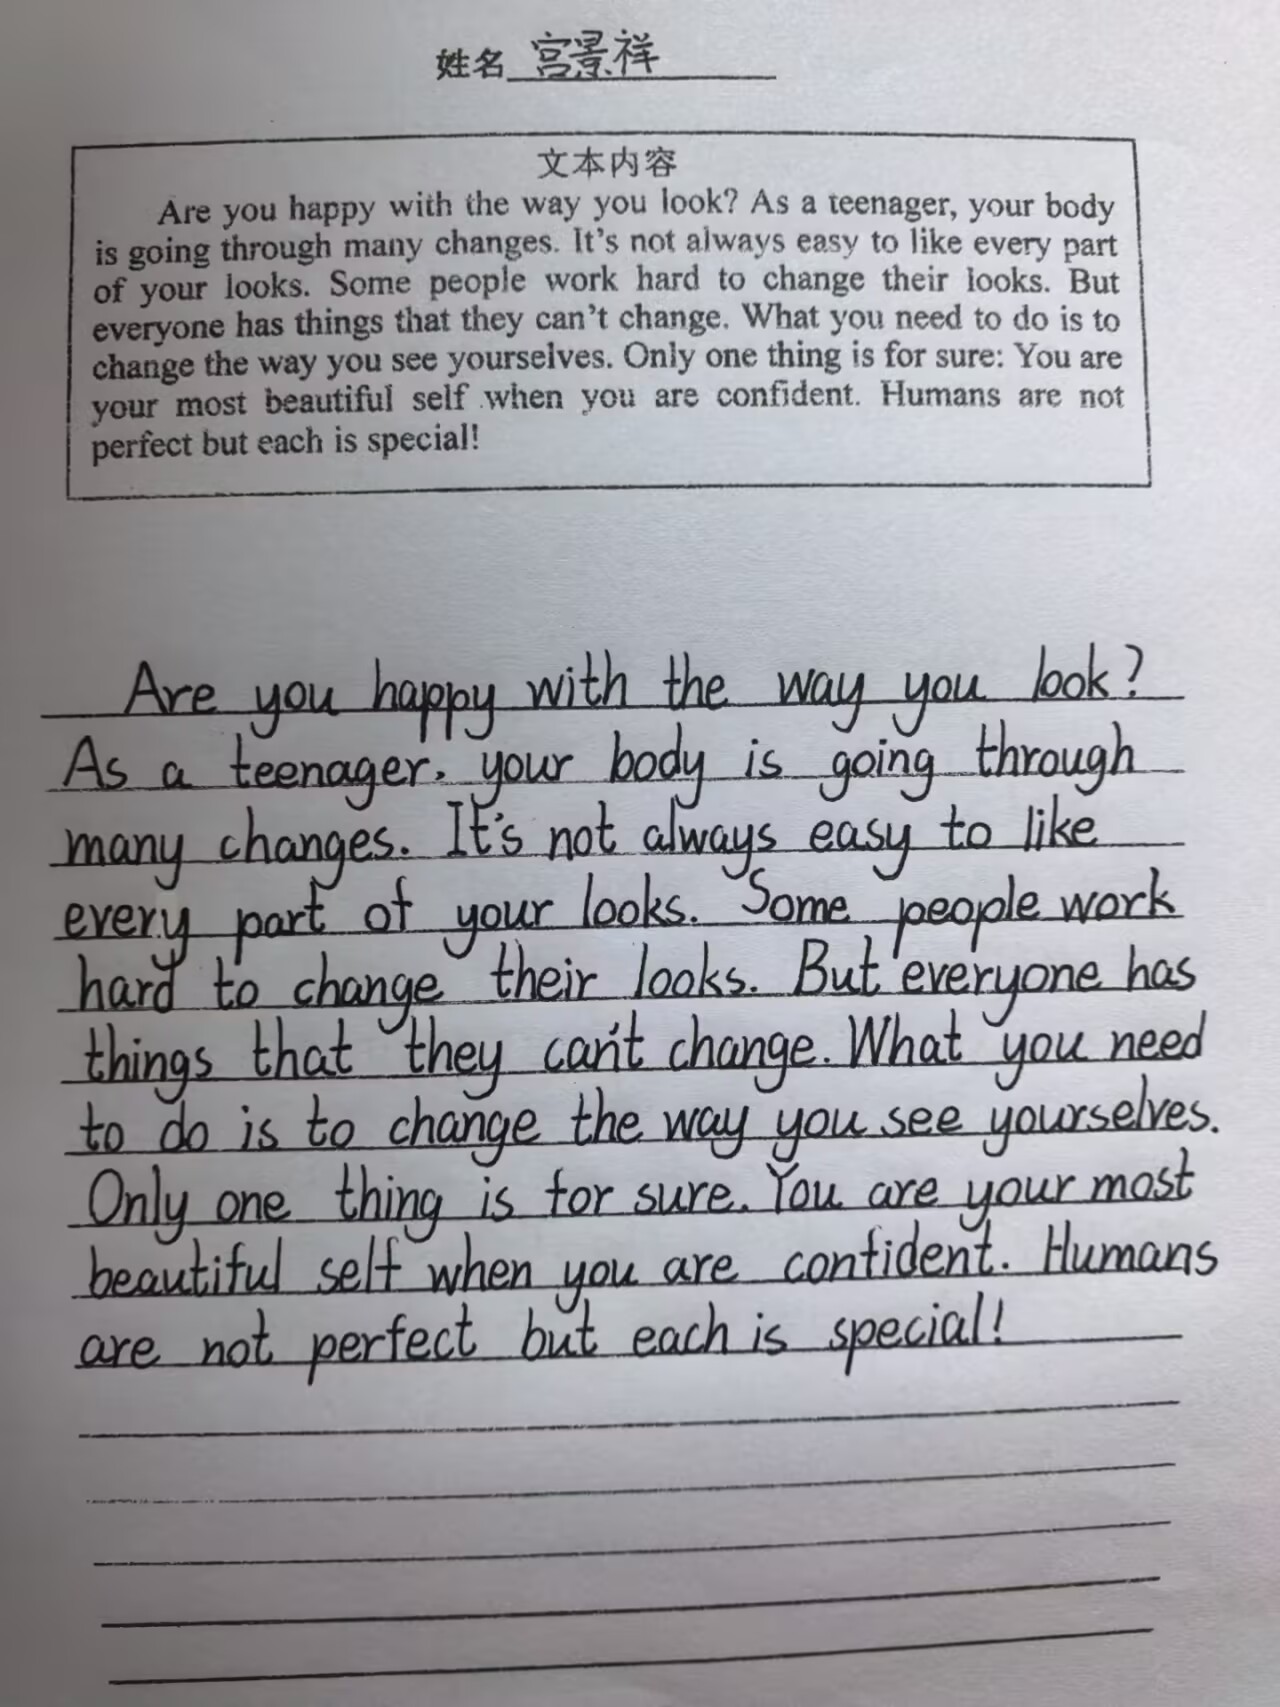 姓名 宫景祥
文本内容
Are you happy with the way you look? As a teenager, your body
is going through many changes. It's not always easy to like every part
of your looks. Some people work hard to change their looks. But
everyone has things that they can't change. What you need to do is to
change the way you see yourselves. Only one thing is for sure: You are
your most beautiful self when you are confident. Humans are not
perfect but each is special!
Are you happy with the way you look?
As a teenager, your body is going through
many changes. It's not always easy to like
every part of your looks. Some people work
hard to change their looks. But everyone has
things that they can't change. What you need
to do is to change the way you see yourselves.
Only one thing is for sure. You are your most
beautiful self when you are confident. Humans
are not perfect but each is special!